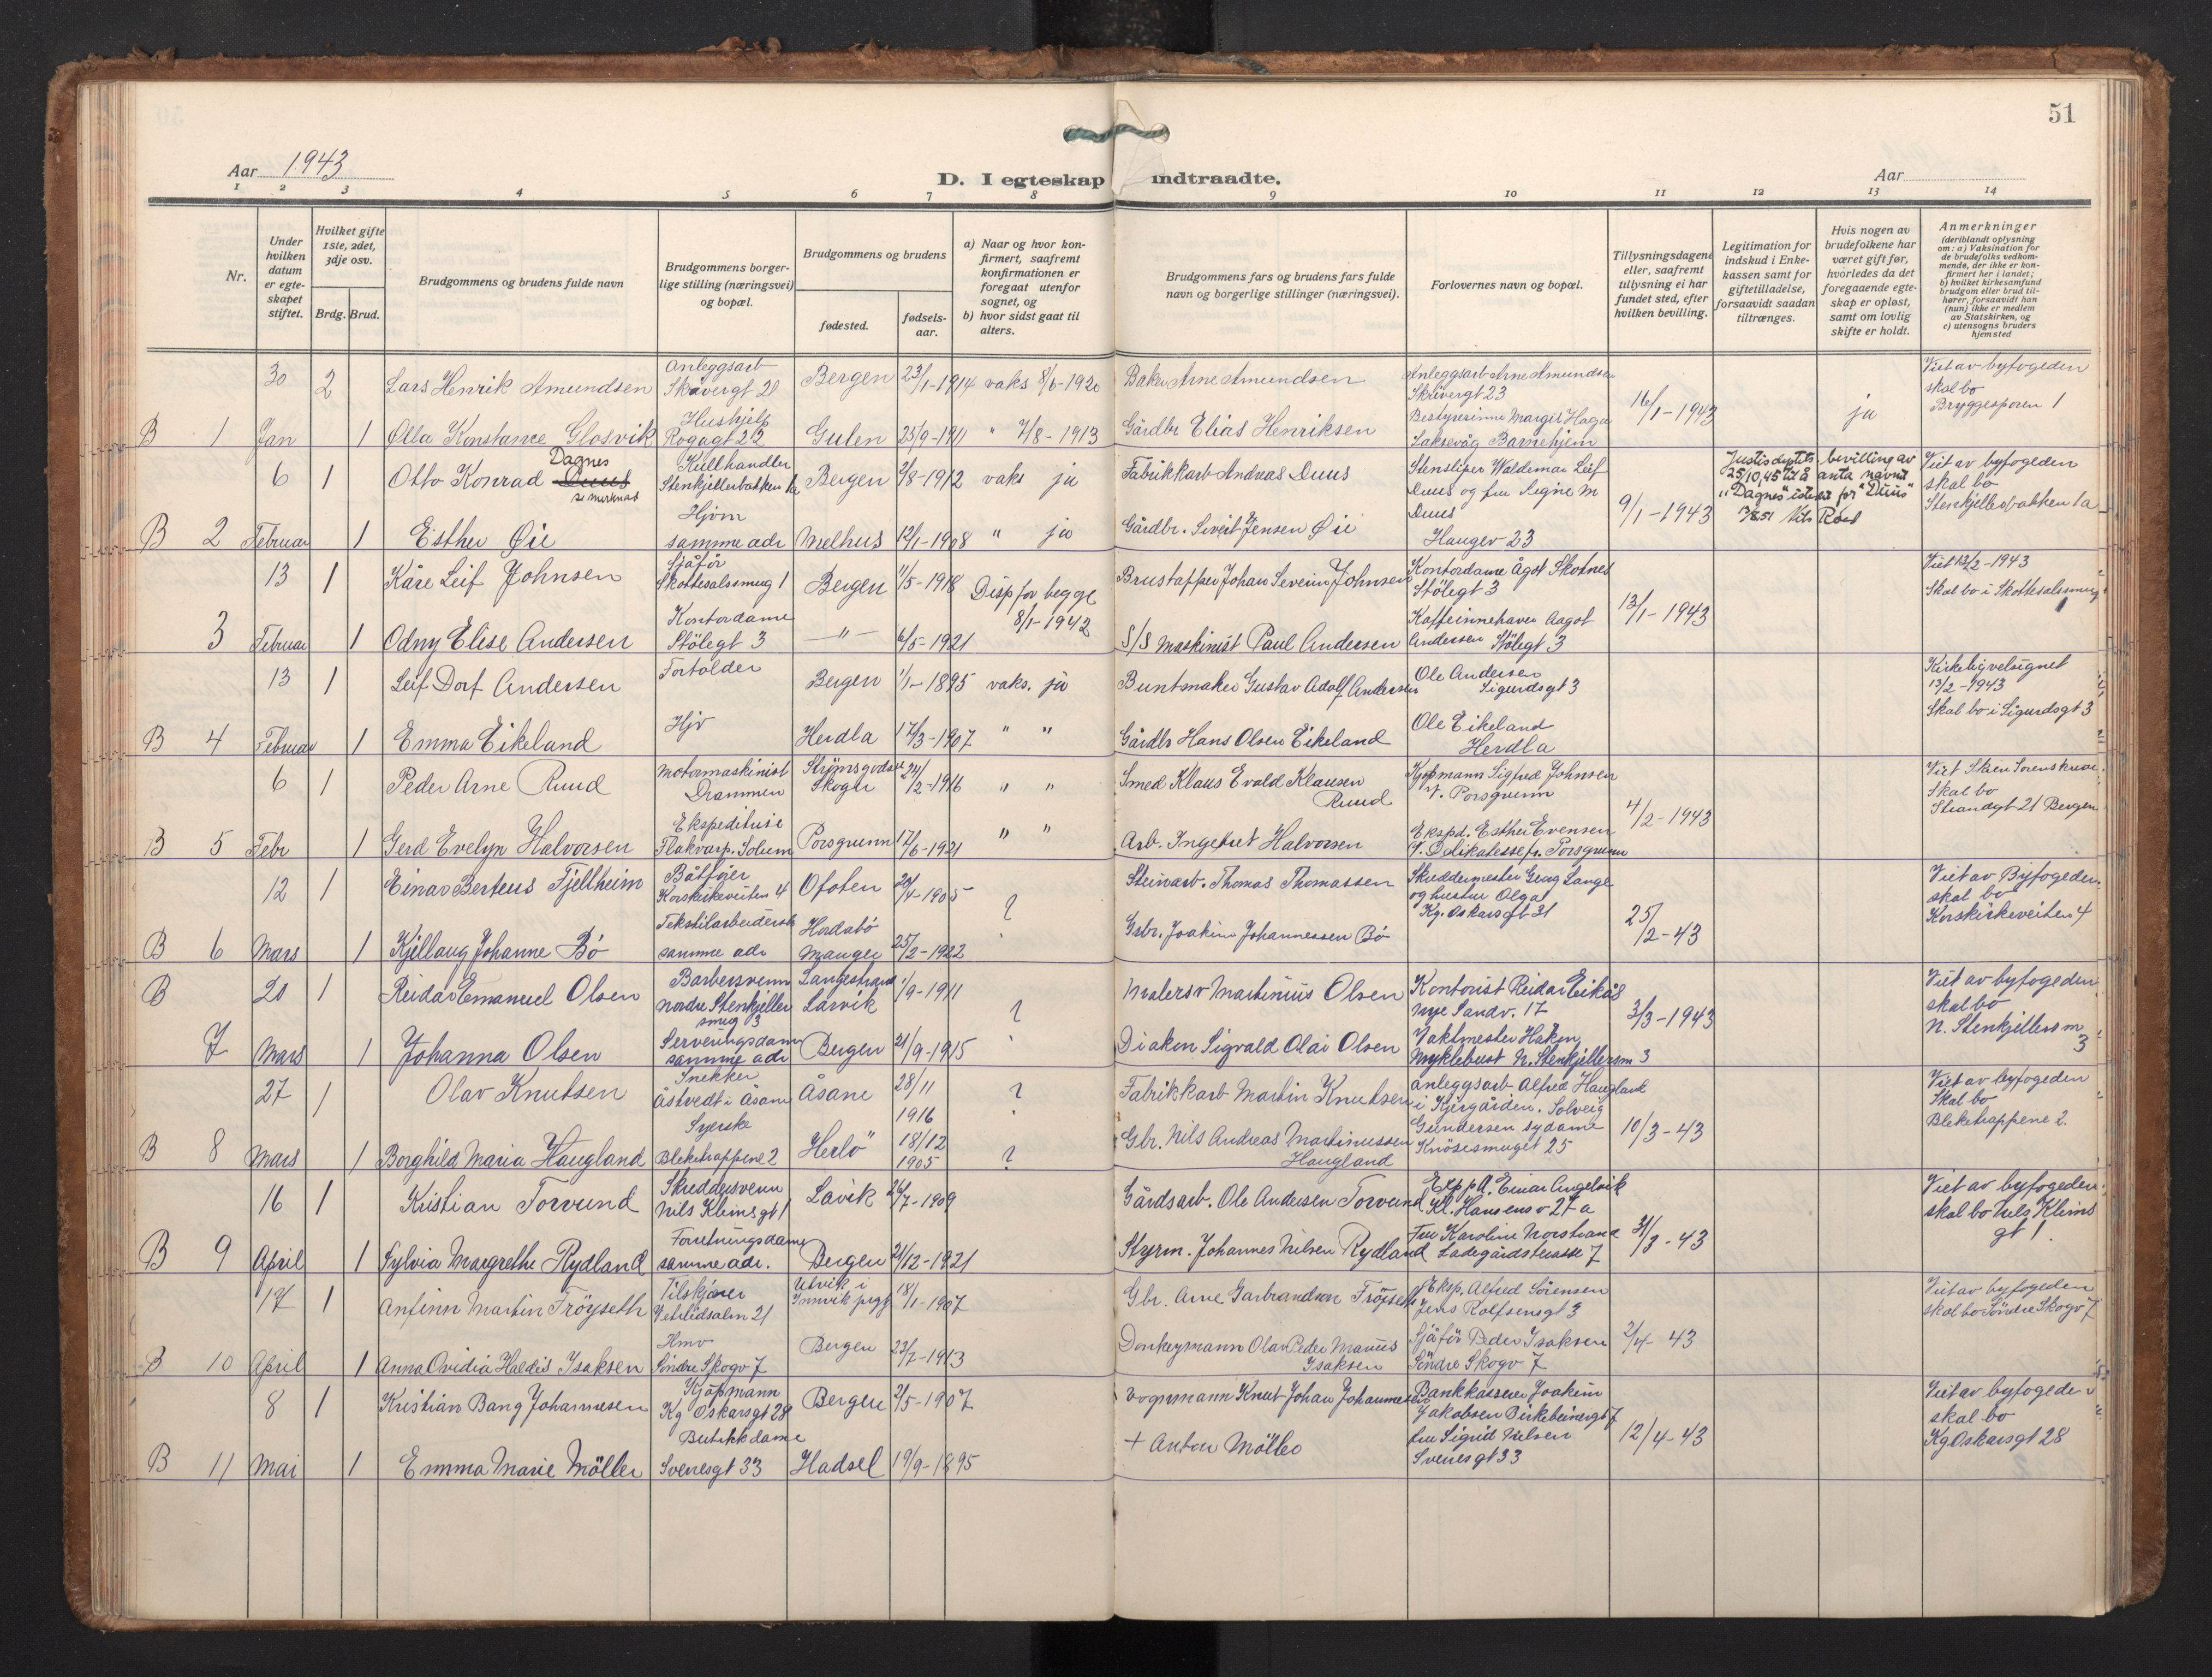 51
Aar 1943
D. I egteskap indtraadte.
Aar
1 2 3 4 5 6 7 8 9 10 11 12 13 14
Nr.
Under hvilken datum er egteskapet stiftet.
Hvilket gifte 1ste, 2det, 3dje osv.
Brdg. Brud.
Brudgommens og brudens fulde navn
Brudgommens borgerlige stilling (næringsvei) og bopæl.
Brudgommens og brudens
fødested.
fødselsaar.
a) Naar og hvor konfirmert, saafremt konfirmationen er foregaat utenfor sognet, og
b) hvor sidst gaat til alters.
Brudgommens fars og brudens fars fulde navn og borgerlige stillinger (næringsvei).
Forlovernes navn og bopæl.
Tillysningsdagene eller, saafremt tillysning ei har fundet sted, efter hvilken bevilling.
Legitimation for indskud i Enkekassen samt for giftetilladelse, forsaavidt saadan tiltrænges.
Hvis nogen av brudefolkene har været gift før, hvorledes da det foregaaende egteskap er opløst, samt om lovlig skifte er holdt.
Anmerkninger
(deriblandt oplysning om: a) Vaksination for de brudefolks vedkommende, der ikke er konfirmert her i landet; b) hvilket kirkesamfund brudgom eller brud tilhører, forsaavidt han (hun) ikke er medlem av Statskirken, og c) utensogns bruders hjemsted
30 2 Lars Henrik Amundsen Anleggsarb Skivergt 20 Bergen 23/1-1914 vaks 8/6-1920 Baker Arne Amundsen Anleggsarb Arne Amundsen Skivergt 23 16/1-1943 ja Viet av byfogeden skal bo Bryggesporen 1
B 1 Jan 1 Olla Konstance Glosvik Hushjelp Rogagt 22 Gulen 25/9-1911 " 7/8-1913 Gårdbr Elias Henriksen Bestyrerinne Margit Haga Laksevåg Barnehjem
6 1 Otto Konrad Duus Dagnes se merknad Kullhandler Stenkjellerbakken 1a Bergen 2/8-1912 vaks ja Fabrikkarb Andreas Duus Stensliper Waldemar Leif Duus og fru Regine M Duus 9/1-1943 Justisdeptets bevilling av 25/10,45 til å anta navnet "Dagnes" istedet for "Duus" 13/8 51 Nils Røed Viet av byfogeden skal bo Stenkjellerbakken 1a
B 2 Februar 1 Esther Øie Hjem samme adr Melhus 12/1-1908 " ja Gårdbr. Sivert Jensen Øie Haugev 23
13 1 Kåre Leif Johnsen Sjåfør Skottesalssmug 1 Bergen 11/5-1918 Disp for begge 8/1-1942 Brustapper Johan Severin Johnsen Kontordame Ågot Skotnes Stölegt 3 13/1-1943 Viet 13/2-1943 Skal bo i Skottesalssmug 1
3 Februar 1 Odny Elise Andersen Kontordame Stölegt 3 -"- 6/5-1921 S/S Maskinist Paul Andersen Kaffeinnehaver Aagot Andersen Stölegt 3
13 1 Leif Dorf Andersen Fortolder Bergen 1/1-1895 vaks. ja Buntmaker Gustav Adolf Andersen Ole Andersen Sigurdsgt 3 Kirkelig velsignet 13/2-1943 Skal bo i Sigurdsgt 3
B 4 Februar 1 Emma Eikeland Hjv Herdla 17/3-1907 " " Gårdbr Hans Olsen Eikeland Ole Eikeland Herdla
6 1 Peder Arne Ruud Motormaskinist Drammen Skoger 24/2-1916 " " Smed Klaus Evald Klausen Ruud Kjøpmann Sigfred Johnsen V. Porsgrunn 4/2-1943 Viet Skien Sorenskriver. Skal bo Strandgt 21 Bergen
B 5 Febr 1 Gerd Evelyn Halvorsen Ekspeditrise Flakvarp. Solum Porsgrunn 17/6-1921 " " Arb. Ingebret Halvorsen Ekspd. Esther Evensen V. Delikatessefr. Porsgrunn
12 1 Einar Berteus Fjellheim Båtfører Korskirkeveiten 4 Ofoten 20/4-1905 ? Steinarb. Thomas Thomassen Skreddermester Georg Lange og hustru Olga Kg. Oskarsgt 31 25/2-43 Viet av Byfogeden skal bo Korskirkeveiten 4
B 6 Mars 1 Kjellaug Johanne Bö Tekstilarbeiderske samme adr Hordabö Manger 25/2-1922 Grbr. Joakim Johannessen Bö
B 20 1 Reidar Emanuel Olsen Barbersvenn Nordre Stenkjellersmug 3 Langestrand Larvik 1/9-1911 ? Malersv Martinius Olsen Kontorist Reidar Eikås Nye Sandv. 17 3/3-1943 Viet av byfogeden skal bo N. Stenkjellersm 3
7 Mars 1 Johanna Olsen Serveringsdame samme adr Bergen 21/9-1915 Diakon Sigvald Olai Olsen Vaktmester Håkon Myklebust N. Stenkjellersm 3
27 1 Olav Knutsen Snekker Åstvedt i Åsane Åsane 28/11 1916 ? Fabrikkarb Martin Knutsen Anleggsarb Alfred Haugland i Kjergården. Solveig Gundersen sydame Knösesmuget 25 10/3-43 Viet av byfogeden Skal bo Bleketrappene 2.
B 8 Mars 1 Borghild Maria Haugland Syerske Bleketrappene 2 Herlö 18/12 1905 ? Gbr. Nils Andreas Martinussen Haugland
16 1 Kristian Torvund Skreddersvenn Nils Kleimsgt 1 Lavik 26/7-1909 Gårdsarb. Ole Andersen Torvund Einar Angelvik Kl. Hansens v 27a 31/3-43 Viet av byfogeden skal bo Nils Kleims gt 1.
B 9 April 1 Sylvia Margrethe Rydland Forretningsdame samme adr. Bergen 21/12-1921 Styrm. Johannes Nilsen Rydland Fru Karoline Norstrand Ladegårdsterasse 7
17 1 Anfinn Martin Fröyseth Tilskjærer Vetrlidsalm 21 Utvik i Innvik prgj 18/1-1907 Gbr. Arne Garbrandsen Fröyseth Eksp. Alfred Sörensen Jens Rolfsensgt 3 2/4-43 Viet av byfogeden skal bo Söndre Skogv 7
B 10 April 1 Anna Ovidia Haldis Isaksen Hmv Söndre Skogv 7 Bergen 23/7-1913 Donkeymann Olav Peder Marius Isaksen Sjåför Peder Isaksen Söndre Skogv 7
8 1 Kristian Bang Johannesen Kjöpmann Kg Oskarsgt 28 Bergen 2/5-1907 Vognmann Knut Johan Johannesen Bankkasserer Joakim Jakobsen Birkebeinergt 7 12/4-43 Viet av byfogeden skal bo Kg Oskarsgt 28
B 11 Mai 1 Emma Marie Möller Butikkdame Sverresgt 33 Hadsel 19/9-1895 + Anton Möller fru Sigrid Nilsen Sverresgt 33